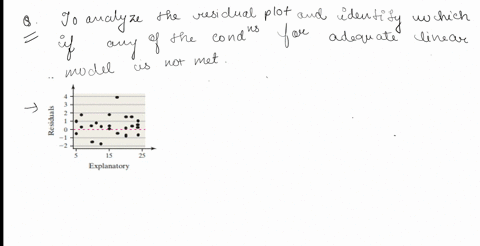 Q. To analyze the residual plot and identify which
if any of the cond^ns for adequate linear
model is not met.
→
Residuals
4
3
2
1
0
-1
-2
5 15 25
Explanatory